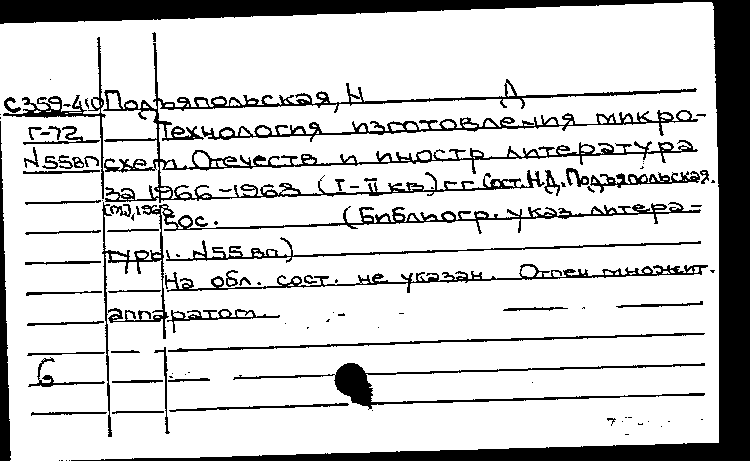 С359-410 Подъяпольская, Н Д
Г-72 Технология изготовления микро-
N55вп схем. Отечеств и иностр литература
за 1966-1968 (I-II кв.) гг Сост. Н.Д. Подъяпольская.
[М.], 1968 50с. (Библиогр. указ. литера=
туры. N55 вп.)
На обл. сост. не указан. Отпеч множит.
аппаратом.
6